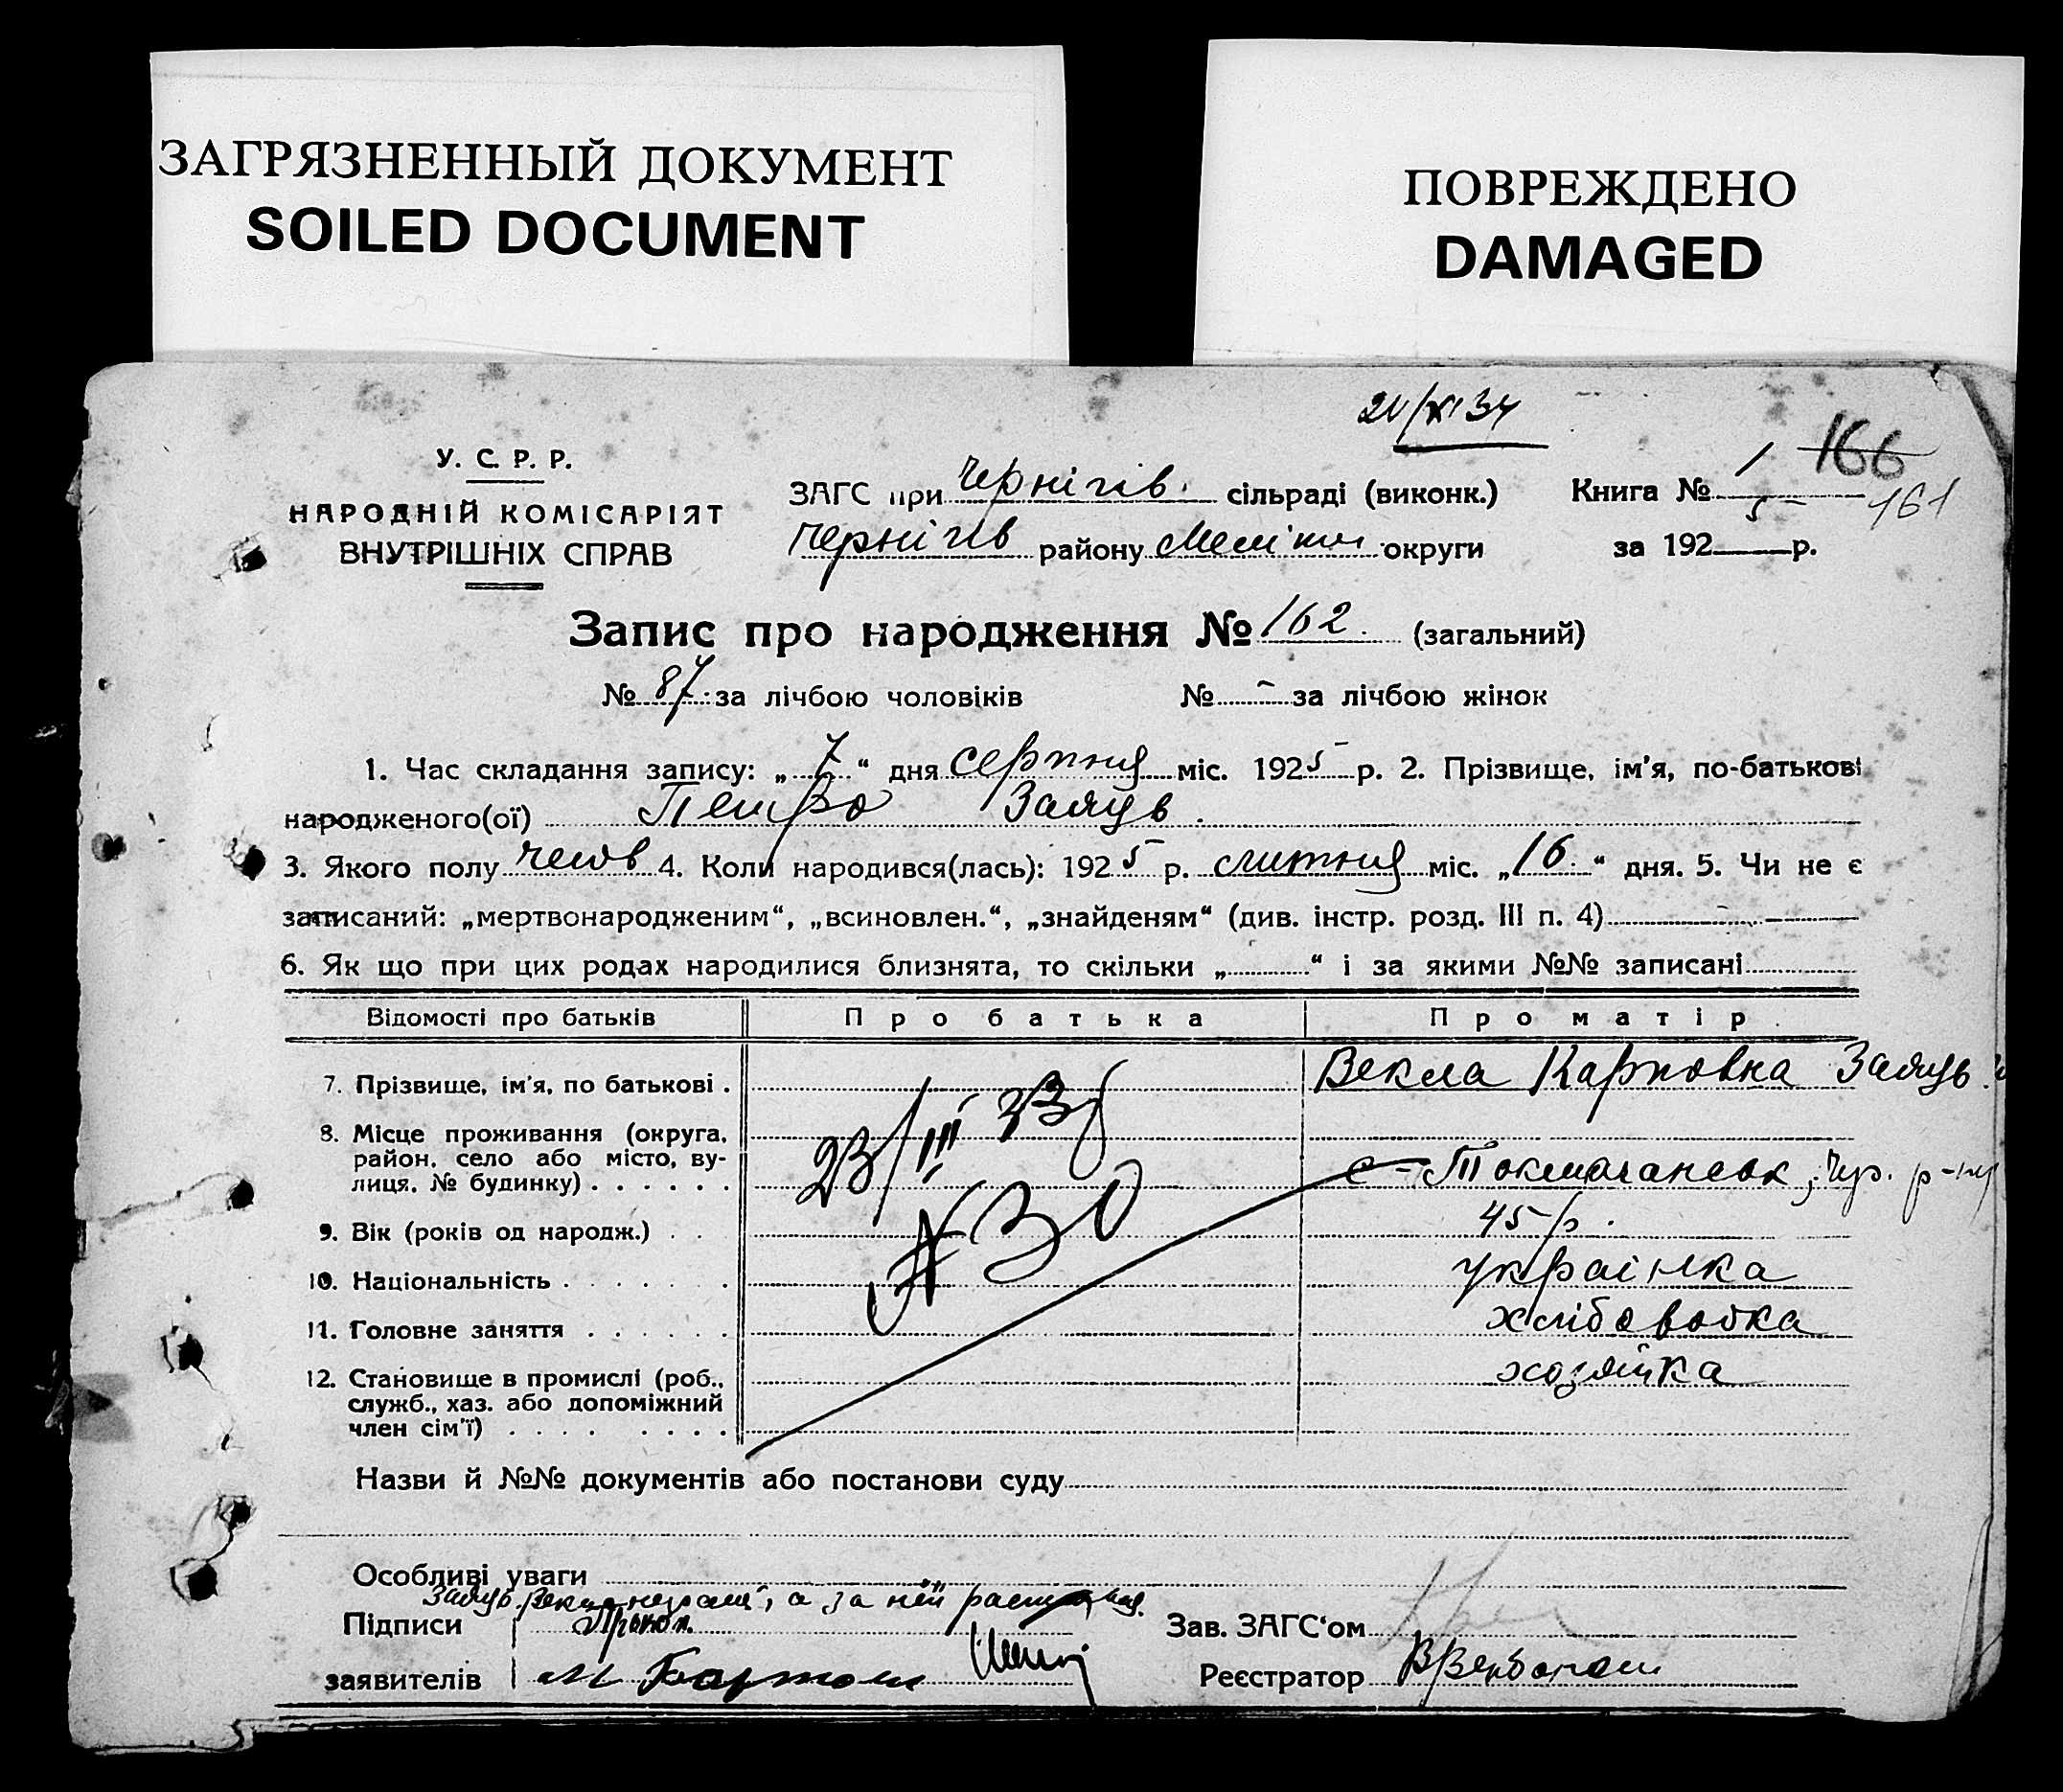 ЗАГРЯЗНЕННЫЙ ДОКУМЕНТ
SOILED DOCUMENT
ПОВРЕЖДЕНО
DAMAGED
У. С. Р. Р.
НАРОДНІЙ КОМІСАРІЯТ
ВНУТРІШНІХ СПРАВ
ЗАГС при Чернігів. сільраді (виконк.)
Чернігів району округи
Книга № 1 166
161
за 192 5 р.
Запис про народження № 162. (загальний)
№ 87 за лічбою чоловіків № - за лічбою жінок
1. Час складання запису: „ 7 “ дня серпня міс. 192 5 р. 2. Прізвище, ім'я, по-батькові
народженого(ої) Петро Заяць.
3. Якого полу чолов 4. Коли народився(лась): 192 5 р. липня міс. „ 16. “ дня. 5. Чи не є
записаний: „мертвонародженим“, „всиновлен.“, „знайденям“ (див. інстр. розд. III п. 4) -
6. Як що при цих родах народилися близнята, то скільки „ “ і за якими №№ записані
Відомості про батьків Про батька Про матір.
7. Прізвище, ім'я, по батькові . Векла Карповна Заяць
8. Місце проживання (округа,
район, село або місто, ву-
лиця, № будинку) . . . . . .
9. Вік (років од народж.) . . 45 р.
10. Національність . . . . . . українка
11. Головне заняття . . . . . . хліборобка
12. Становище в промислі (роб., хозяйка
служб., хаз. або допоміжний
член сім'ї) . . . . . . . .
23/III 33
№ 30
Назви й №№ документів або постанови суду
Особливі уваги
Заяць Векла неграм, а за неї
Підписи
заявителів М
Зав. ЗАГС‘ом
Реєстратор